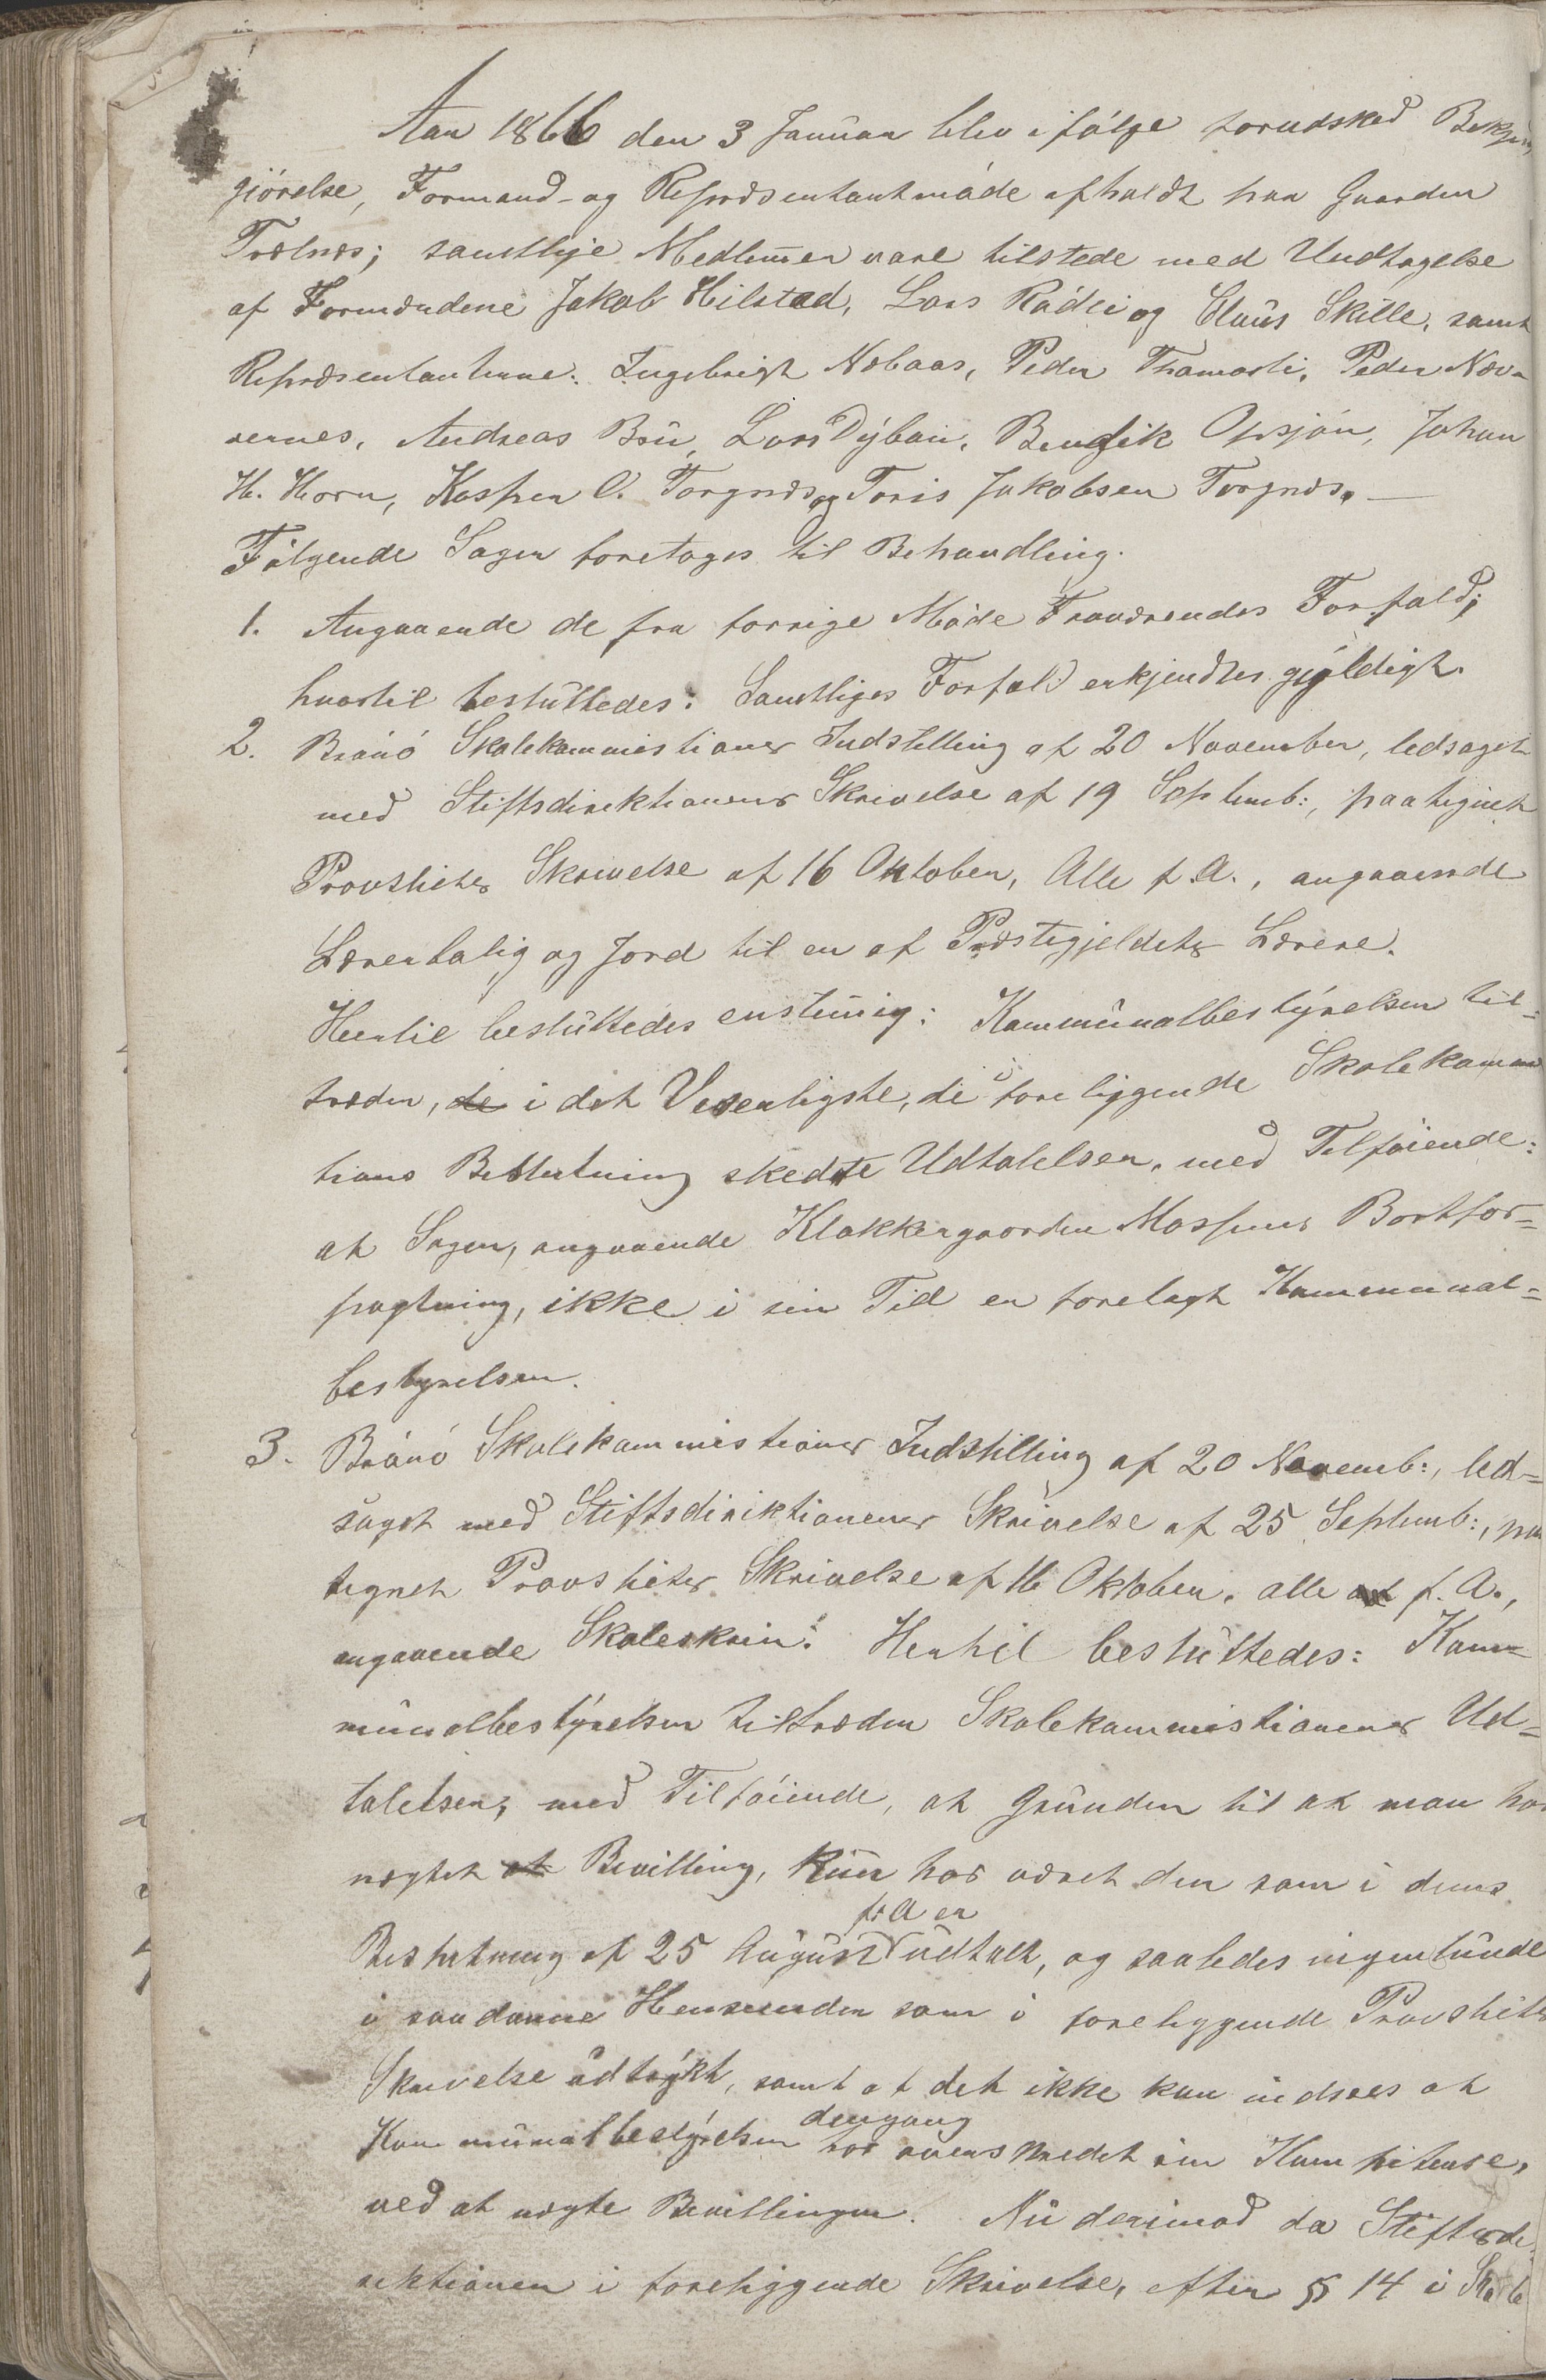 Aar 1866 den 3 Januar blev ifølge forudsked Bekjendt
gjörelse, Formand- og Repræsentantmöde afholdt paa Gaarden
Trælnæs; samtlige Medlemmer vare tilstede med Undtagelse
af Formændene Jakob Hilstad, Lars Rödli og Claus Skille, samt
Repræsentanterne: Ingebrigt Nøbaas, Peder Thamosli, Peder Næv-
ernes, Andreas Brû, Lars Dybau, Bendik Opsjøn, Johan
H. Horn, Kasper O. Torgnæs og Toris Jakobsen Torgnæs. —
Følgende Sager foretoges til Behandling.
1. Angaaende de fra forrige Möde Fraværendes Forfald;
hvortil besluttedes: Samtliges Forfald erkjendtes gyldigt.
2. Brönö Skolekommistions Indstilling af 20 November, ledsaget
med Stiftsdirektionens Skrivelse af 19 Septemb:, paategnet
Provstiets Skrivelse af 16 Oktober, Alle f.A., angaaende
Lærerbolig og Jord til en af Præstegjeldets Lærere.
Hertil besluttedes enstemig: Kommunalbestyrelsen til-
træder, de i det Vesentligste, de i foreliggende Skolekommis
tions Beslutning skedte Udtalelser, med Tilföiende:
at Sagen, angaaende Klokkergaarden Mosheims Bortfor=
pagtning, ikke i sin Tid er forelagt Kommunal=
bestyrelsen.
3. Brönö Skolekommistions Indstilling af 20 Novemb:, led=
saget med Stiftsdirektionens Skrivelse af 25 Septemb:, paa
tegnet Provstiets Skrivelse af 16 Oktober, alle af f.A.,
angaaende Skoleskrin. Hertil besluttedes: Kom=
munalbestyrelsen tiltræder Skolekommistionens Ud=
talelser, med Tilföiende, at Grunden til at man har
nægtet at Bevilling, kun har været den som i dens
Beslutning af 25 August f.A er udtalt, og saaledes ingenlunde
i saadanne Hensender som i foreliggende Provstiets
Skrivelse udtrykt, samt at det ikke kan indsees at
Kommunalbestyrelsen dengang har overskredet sin Kompitense,
ved at nægte Bevillingen. Nu derimod da Stiftsdi-
rektionen i foreliggende Skrivelse, efter § 14 i Skole